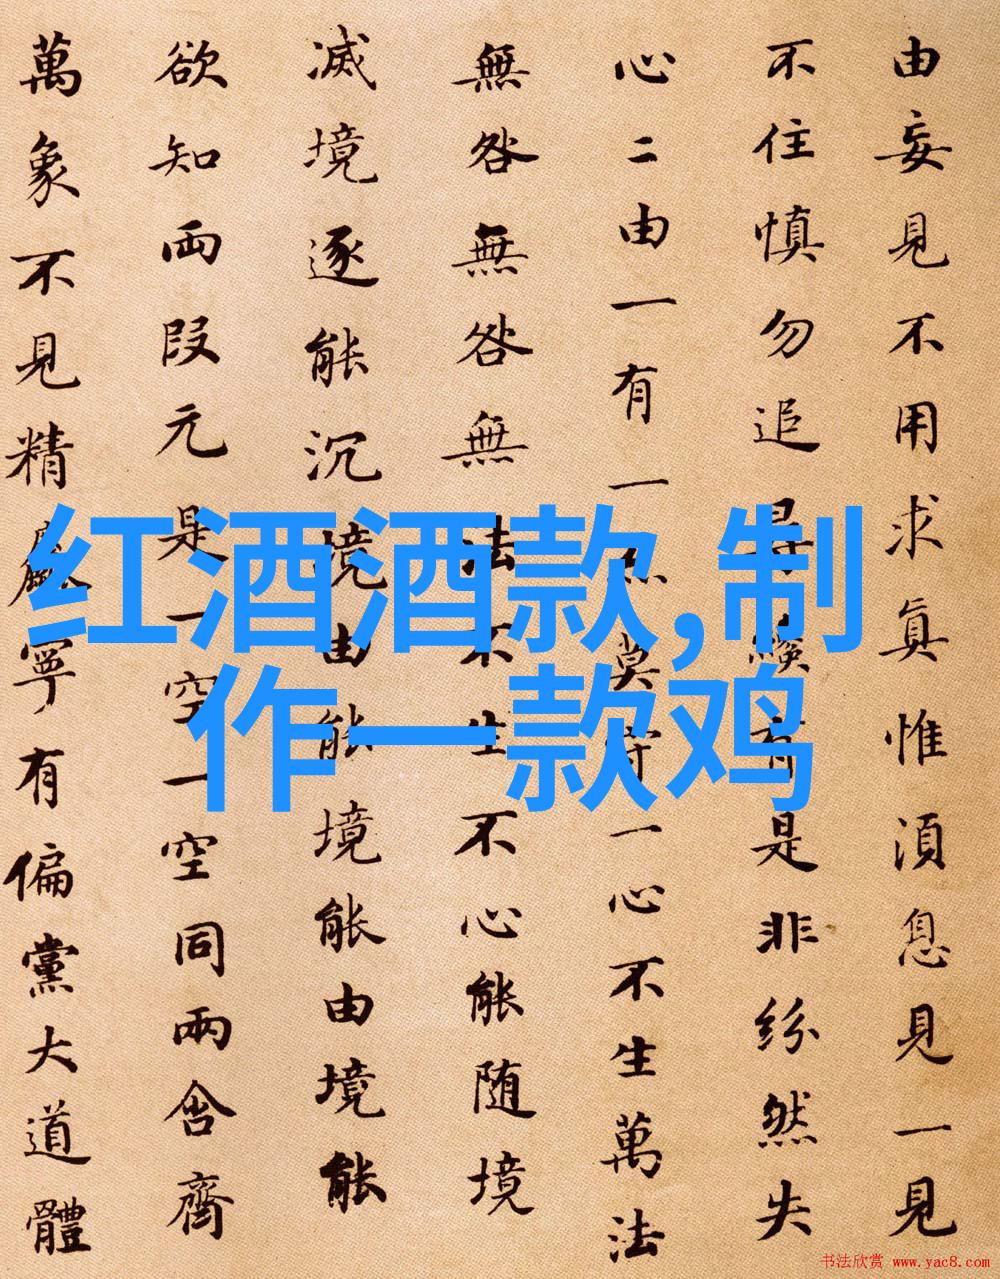 由妄見不用求眞惟須息見一見
不住慎勿追尋纔有是非紛然失
心二由一有一亦莫守一心不生萬法
無咎無咎無法不生不心能随境
滅境逐能沉境由能境能由境能
欲知兩段元是一空一空同兩含齊
萬象不見精麁寧有偏黨大道體
红酒酒款,制
作一款鸡
书法欣赏 www.yac8.com